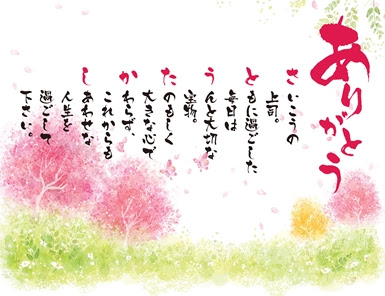 ありがとう
さいこうの
上司。
ともに過ごした
毎日は
うんと大切な
宝物。
たのもしく
大きな心で
かわらず、
これからも
しあわせな
人生を
過ごして
下さい。